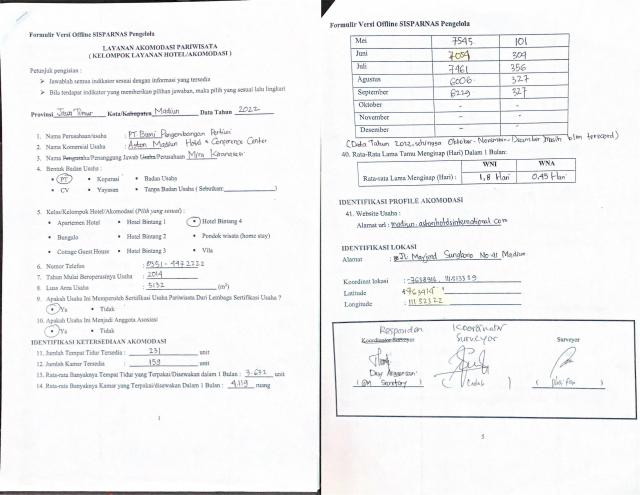 Formulir Versi Offline SISPARNAS Pengelola
LAYANAN AKOMODASI PARIWISATA
( KELOMPOK LAYANAN HOTEL/AKOMODASI )
Petunjuk pengisian :
➢ Jawablah semua indikator sesuai dengan informasi yang tersedia
➢ Bila terdapat indikator yang memberikan pilihan jawaban, maka pilih yang sesuai lalu lingkari
Provinsi Jawa Timur Kota/Kabupaten Madiun Data Tahun 2022
1. Nama Perusahaan/usaha : PT Bumi Pengembangan Pertiwi
2. Nama Komersial Usaha : Aston Madiun Hotel & Conference Center
3. Nama Pengusaha/Penanggung Jawab Usaha/Perusahaan Mira
4. Bentuk Badan Usaha :
• PT • Koperasi • Badan Usaha
• CV • Yayasan • Tanpa Badan Usaha ( Sebutkan: )
5. Kelas/Kelompok Hotel/Akomodasi (Pilih yang sesuai) :
• Apartemen Hotel • Hotel Bintang 1 • Hotel Bintang 4
• Bungalo • Hotel Bintang 2 • Pondok wisata (home stay)
• Cottage Guest House • Hotel Bintang 3 • Vila
6. Nomor Telefon : 0351-4472222
7. Tahun Mulai Beroperasinya Usaha : 2014
8. Luas Area Usaha : 5132 (m²)
9. Apakah Usaha Ini Memperoleh Sertifikasi Usaha Pariwisata Dari Lembaga Sertifikasi Usaha ?
• Ya • Tidak
10. Apakah Usaha Ini Menjadi Anggota Asosiasi
• Ya • Tidak
IDENTIFIKASI KETERSEDIAAN AKOMODASI
11. Jumlah Tempat Tidur Tersedia : 231 unit
12. Jumlah Kamar Tersedia : 159 unit
13. Rata-rata Banyaknya Tempat Tidur yang Terpakai/Disewakan dalam 1 Bulan : 3.632 unit
14. Rata-rata Banyaknya Kamar yang Terpakai/disewakan Dalam 1 Bulan : 4.119 ruang
1
Formulir Versi Offline SISPARNAS Pengelola
Mei 7545 101
Juni 7054 309
Juli 7461 356
Agustus 6006 327
September 6229 327
Oktober - -
November - -
Desember - -
(Data Tahun 2022, sehingga Oktober - November - Desember masih blm terecord)
40. Rata-Rata Lama Tamu Menginap (Hari) Dalam 1 Bulan:
WNI WNA
Rata-rata Lama Menginap (Hari) : 1,8 Hari 0,45 Hari
IDENTIFIKASI PROFILE AKOMODASI
41. Website Usaha :
Alamat url : madiun.astonhotelsinternational.com
IDENTIFIKASI LOKASI
Alamat : Jl. Mayjend Sungkono No.41 Madiun
Koordinat lokasi :
Latitude
Longitude :
Responden Koordinator Surveyor Surveyor
Koordinator Surveyor
( GM Secretary ) ( Endah ) ( )
3